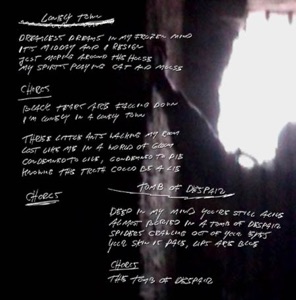 Lonely Town
Dreamless dreams in my frozen mind
It's midday and I design
Just moping around the house
My spirits playing cat and mouse
Chorus
Black tears are falling down
I'm lonely in a lonely town
Three little ants walking my room
Lost like me in a world of gloom
Condemned to live, condemned to die
Knowing this truth could be a lie
Chorus
Tomb of Despair
Deep in my mind you're still alive
Almost buried in a tomb of despair
Spiders crawling out of your eyes
Your skin is pale, lips are blue
Chorus
The tomb of despair